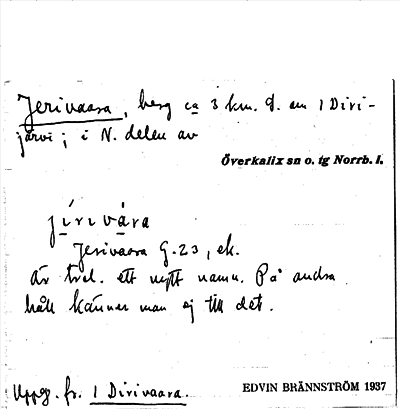 Jerivaara, berg ca 3 km. O. om 1 Diri-
järvi; i N. delen av
Överkalix sn o. tg Norrb. l.
jírivára
Jerivaara G.23, ek.
Är trol. ett nytt namn. På andra
håll känner man ej till det.
Uppg. fr. 1 Dirivaara.
EDVIN BRÄNNSTRÖM 1937